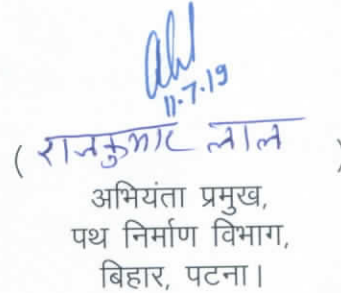 11.7.19
( राजकुमार लाल )
अभियंता प्रमुख,
पथ निर्माण विभाग,
बिहार, पटना।